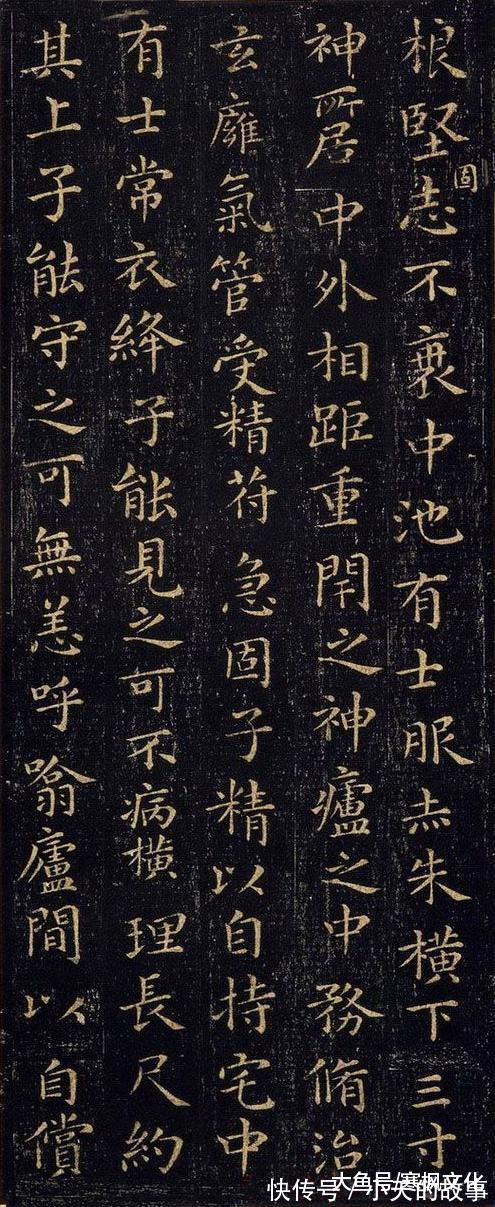 根堅志不衰中池有士服赤朱橫下三寸
固
神所居中外相距重閇之神廬之中務脩治
玄廱氣管受精苻急固子精以自持宅中
有士常衣絳子能見之可不病橫理長尺約
其上子能守之可無恙呼噏廬間以自償
大鱼号/寒枫文化
快传号/小天的故事